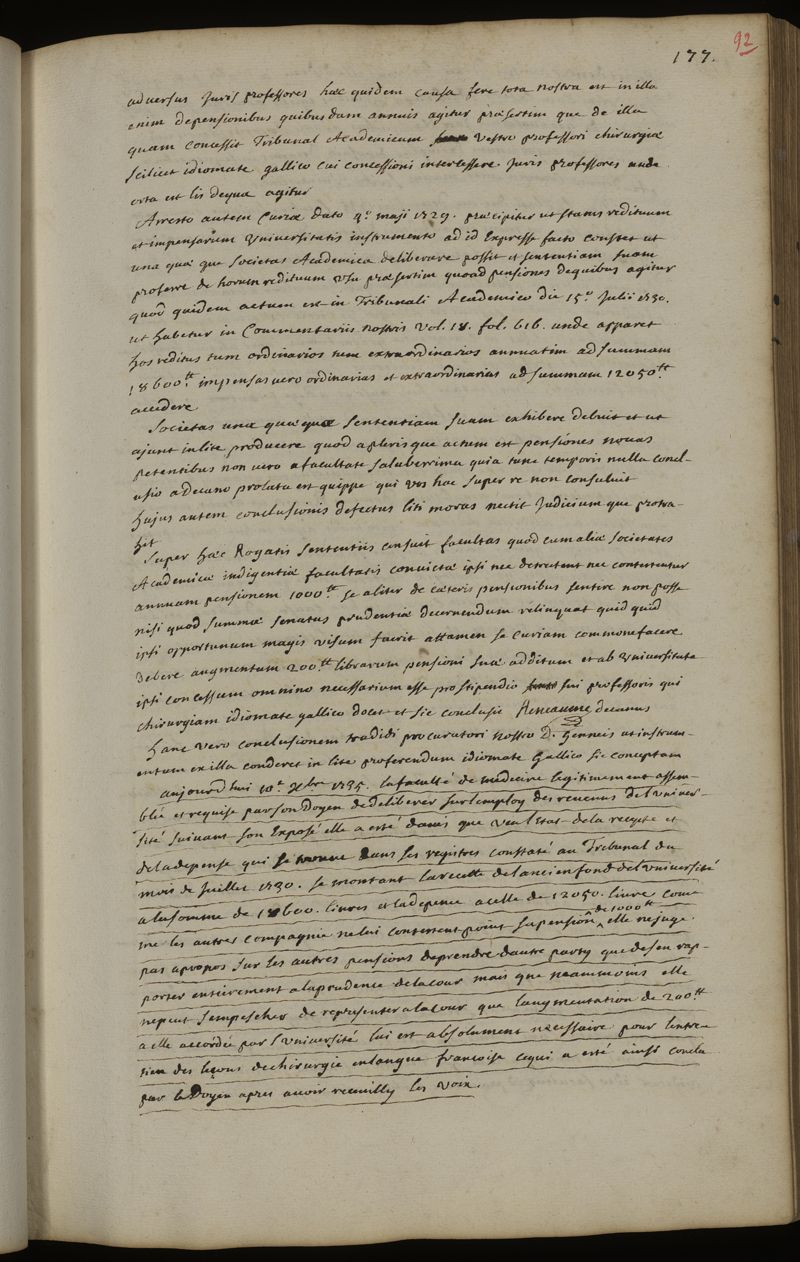 92
177.
adversus Juris professores hæc quidem causa fere tota nostra est in illa
enim de pensionibus quibusdam annuis agitur præsertim que de illa
quam concessit Tribunal Academicum vestro professori chirurgiæ
scilicet idiomate gallico cui concessioni intercessere Juris professores unde
orta est lis de qua agitur
Arresto autem Curiæ dato 4.º maji 1729. præcipitur ut status redituum
et impensarum Universitatis instrumento ad id Expresse facto constet ut
una quæ que societas Academica deliberare possit et sententiam suam
proferre de horum redituum usu præsertim quoad pensiones de quibus agitur
quod quidem actum est in Tribunali Academico die 15.º Julii 1730.
ut habetur in Commentariis nostris vol. 18. fol. 616. unde apparet
hos reditus tum ordinarios tum extraordinarios annuatim ad summam
18600.tt impensas vero ordinarias et extraordinarias ad summam 12050.tt
accedere
Societas unaquæque sententiam suam exhibere debuit et ut
ajunt in lite producere quod a plerisque actum est pensiones novas
petentibus non vero a facultate saluberrima quia tunc temporis nulla concl-
usio a decano prolata est quippe qui vos hac super re non consuluit
hujus autem conclusionis defectus liti moras nectit Judicium que protra-
hit
Super hæc Rogatis sententiis censuit facultas quod cum aliæ societates
Academicæ indigentiæ facultatis convictæ ipsi nec detractent nec contestentur
annuam pensionem 1000.tt se aliter de cæteris pensionibus sentire non posse
nisi quod summæ senatus prudentiæ decernendum relinquat quid quid
ipsi opportunum magis visum fuerit attamen se curiam commonefacere
debere augmentum 200.tt librarum pensioni suæ additum et ab Universitate
ipsi concessum omnino necessarium esse pro stipendio sui professoris qui
chirurgiam idiomate gallico docet et sic conclusit Reneaume decanus
Hanc vero conclusionem tradidi procuratori nostro D. Genneis ut instrum-
entum ex illa conderet in lite proferendum idiomate Gallico sic conceptam
aujourdhui 10.e Xbre 1735. la faculté de medecine legitimement assem-
blée et requise par son Doyen de deliberer sur lemploy des revenus de l'univer-
sité suivant son Exposé elle a esté d'avis que veu l'Etat de la recepte et
de la depense qui se trouve dans ses registres constaté au Tribunal du
mois de Juillet 1730. se montant la recette de l'ancien fond de l'université
a la somme de 18600. livres et la depense a celle de 12050. livre com-
me les autres compagnie ne lui contestent point sa pension de 1000tt elle ne juge
pas apropos sur les autres pensions de prendre d'autre party que de s'en rap-
porter entièrement a la prudence de la cour mais que neammoins elle
ne peut s'empescher de representer a la cour que l'augmentation de 200.tt
a elle accordée par l'Université lui est absolument necessaire pour lentre-
tien des leçons de chirurgie en langue françoise ce qui a esté ainsi conclu
par le Doyen apres avoir recueilly les voix.